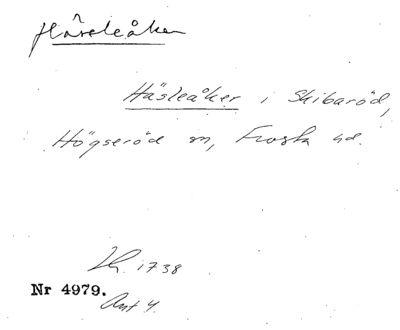 Häsleåker
Häsleåker i Skibaröd,
Högseröd sn, Frosta hd.
1738
Nr 4979.
Ant 4.